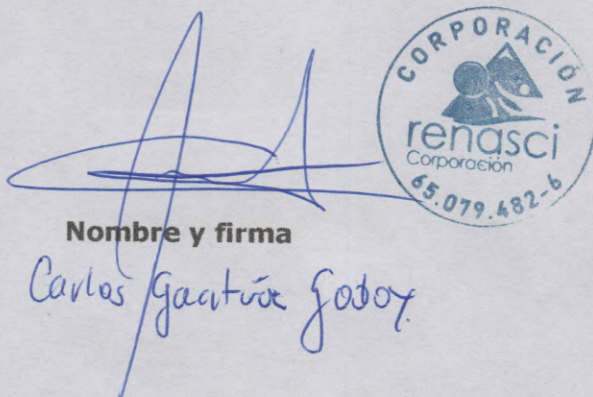 CORPORACIÓN
renasci
Corporación
65.079.482-6
Nombre y firma
Carlos Godoy